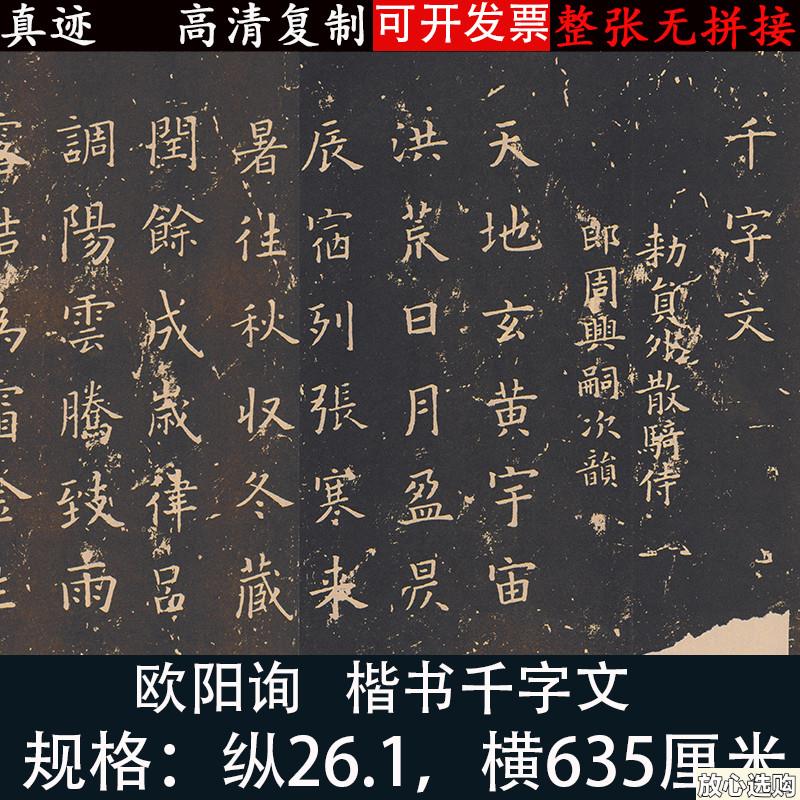 真迹 高清复制 可开发票 整张无拼接
千字文
勑員外散騎侍
郎周興嗣次韻
天地玄黄宇宙
洪荒日月盈昃
辰宿列張寒来
暑往秋収冬蔵
閏餘成歳律吕
調陽雲騰致雨
露結為霜金生
欧阳询 楷书千字文
规格：纵26.1，横635厘米
放心选购